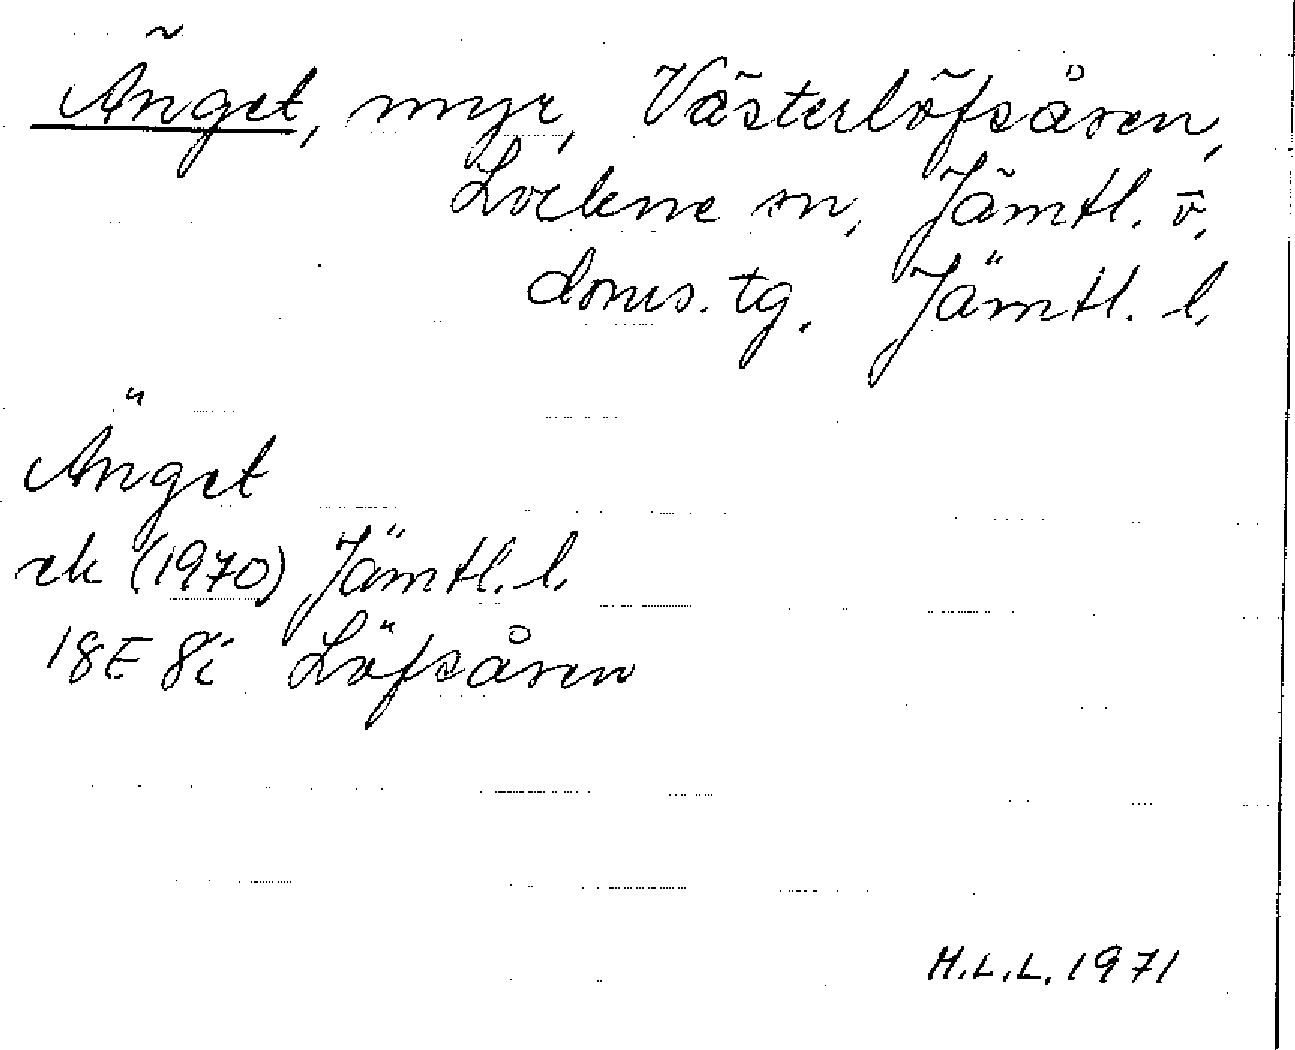 Änget, myr, Västerlöfsåsen,
Lockne sn, Jämtl. ö.
doms. tg. Jämtl. l.
Änget
ek (1970) Jämtl. l.
18E 8i Löfsåsen
H.L.L. 1971